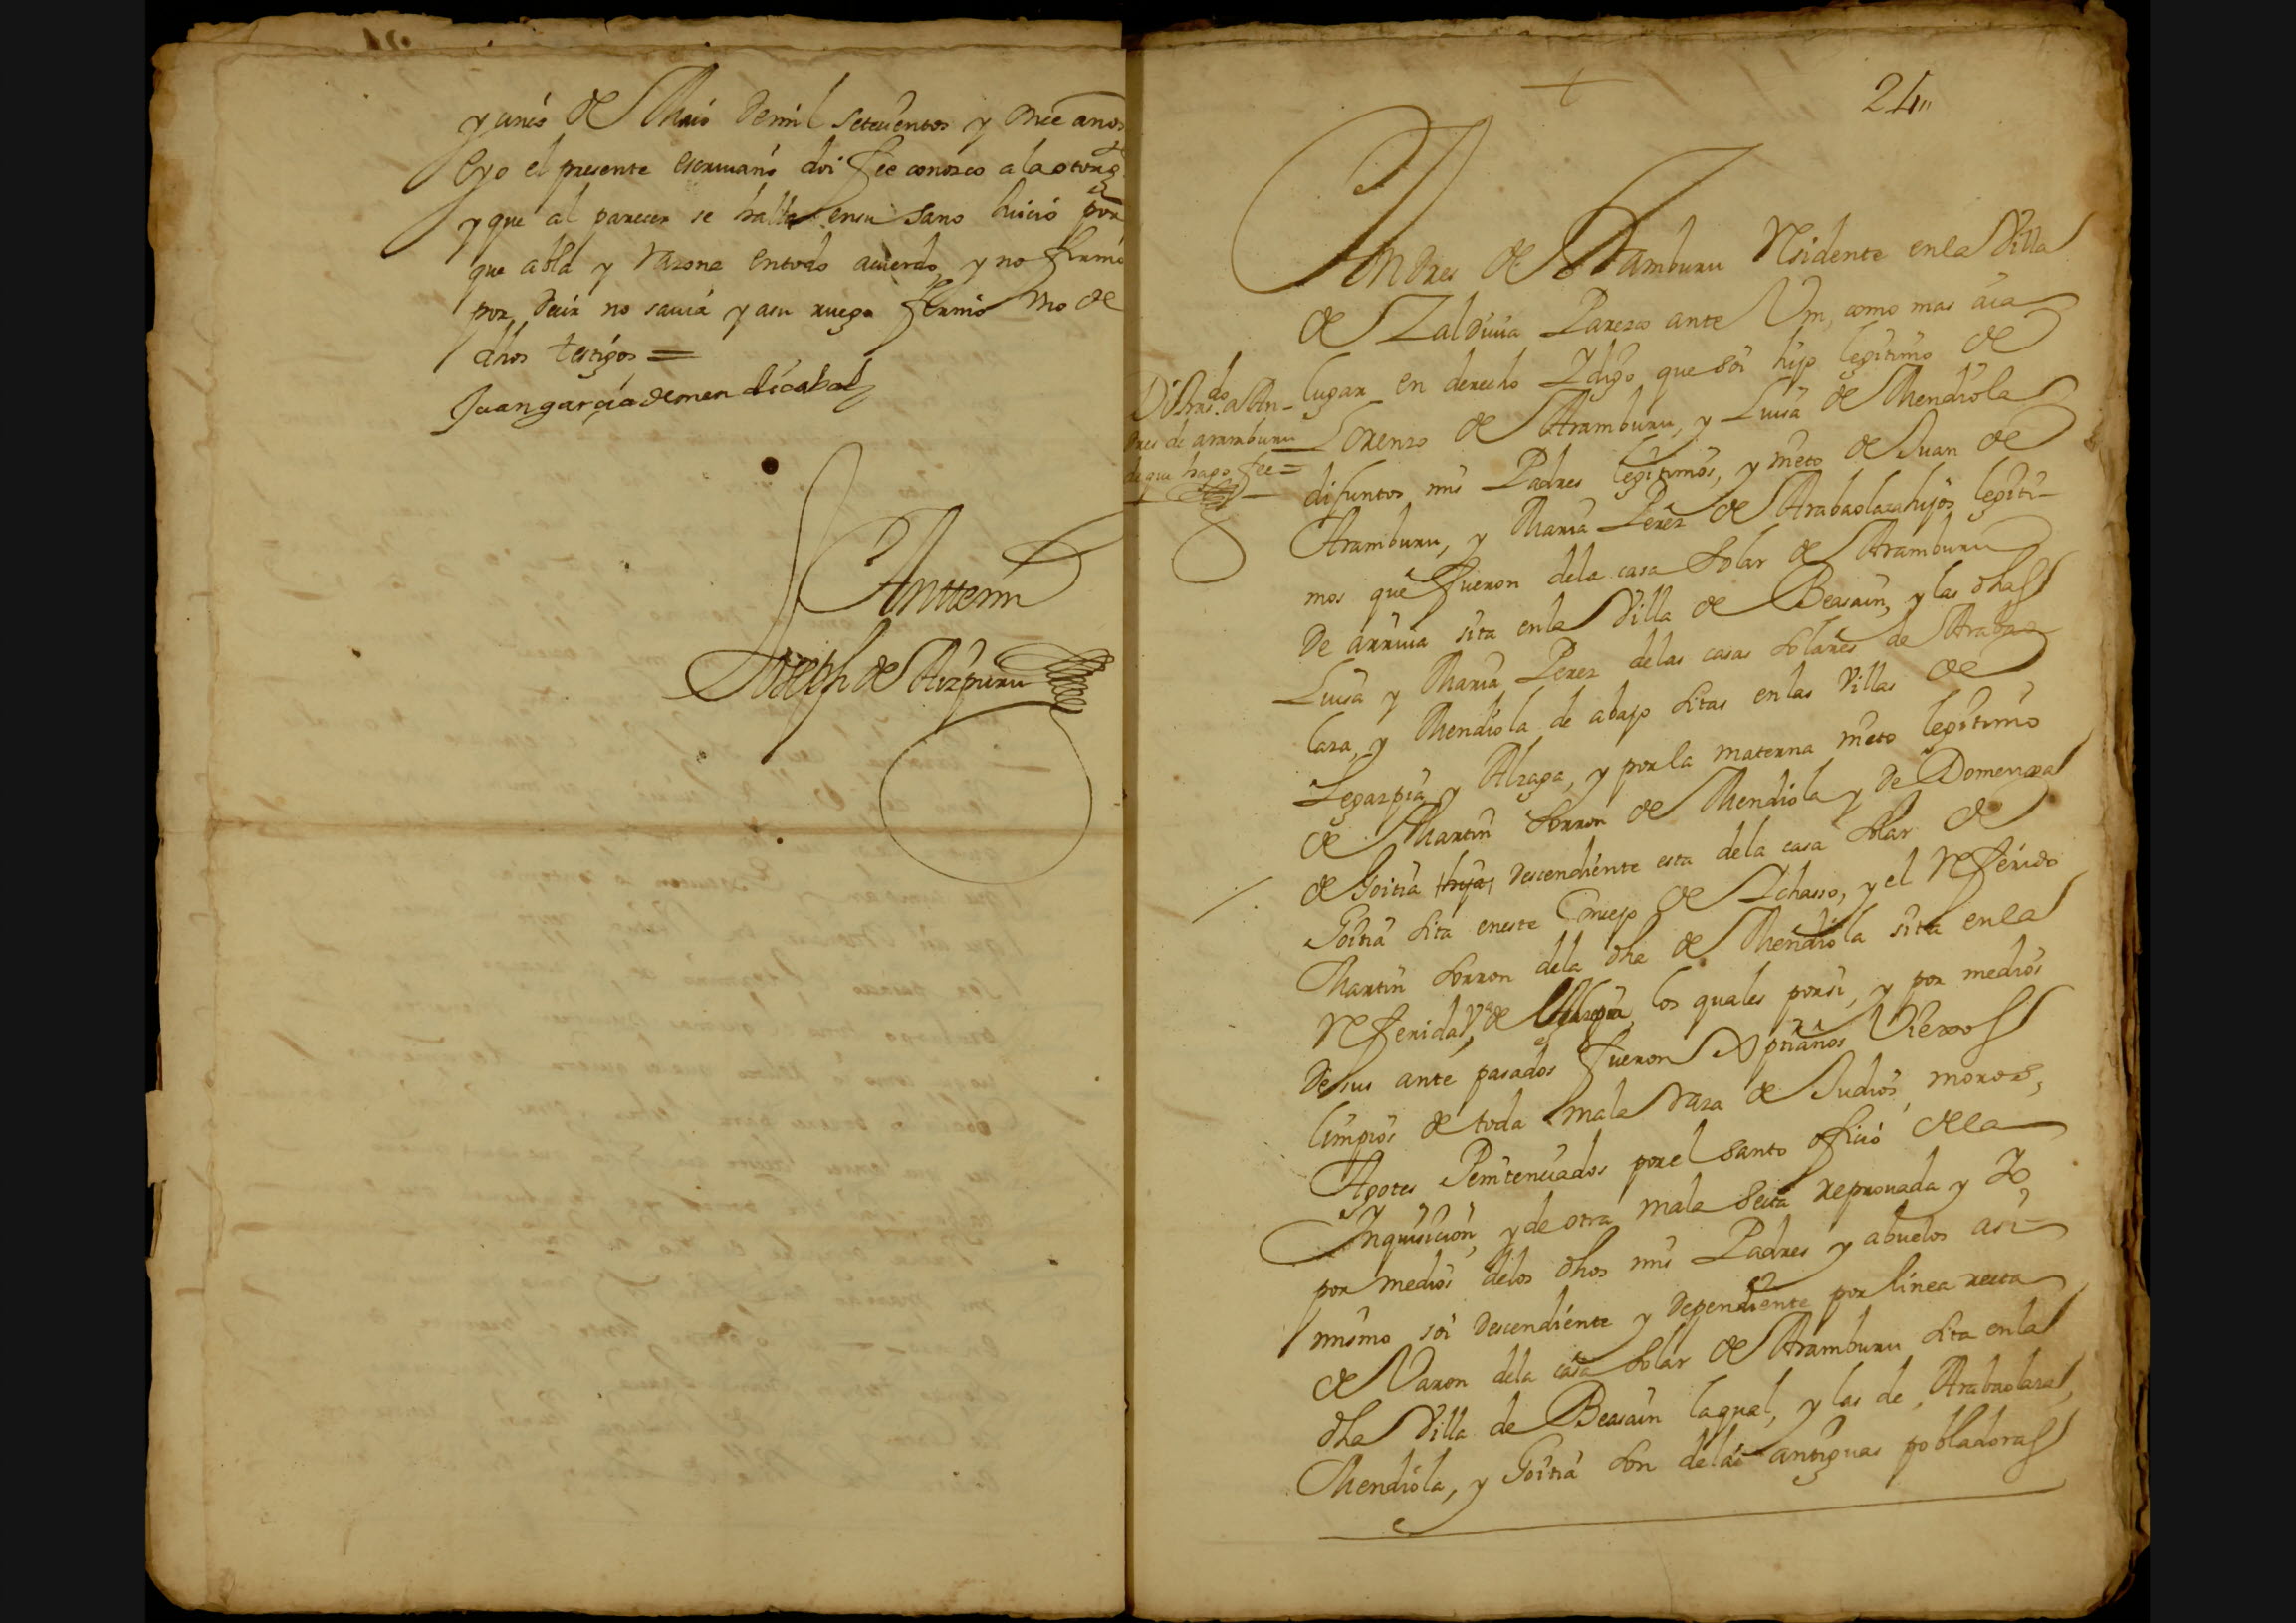 y cinco de Maio de mil setecientos y once años
e yo el presente escriuano doi fee conozco a la otorg.
y que al parecer se halla en su sano Juicio por
que abla y razona en todo acuerdo, y no firmó
por decir no sauia y a su ruego firmó vno de
dhos testigos =
Juan garcia de mendicabal
Antemi
Joseph de Aizpuru
24
Andres de Aramburu Residente en la Villa
de Zaldiuia Parezco ante Vm, como mas aia
lugar en derecho Y digo que soi hijo legitimo de
Lorenzo de Aramburu, y Luisa de Mendiola
difuntos mis Padres legitimos, y nieto de Juan de
Aramburu, y Maria Perez de Arabaolaza hijos legiti-
mos que fueron dela casa solar de Aramburu
de arriua sita en la Villa de Beasain, y las dhas
Luisa y Maria Perez delas casas solares de Arabao
laza, y Mendiola de abajo sitas en las Villas de
Legazpia y Alzaga, y por la materna nieto legitimo
de Martin Sorron de Mendiola y de Domenxa
de Goitia hija descendiente esta dela casa solar de
Goitia sita en este Concejo de Ychasso, y el Referido
Martin Sorron dela dha de Mendiola sita en la
Referida Vª de los quales por si, y por medios
de sus ante pasados fueron Xptianos Viexos
limpios de toda mala raza de Judios, moros,
Agotes Penitenciados por el santo oficio dela
Ynquisicion, y de otra mala secta reprouada y Yo,
por medios delos dhos mis Padres y abuelos asi-
mismo soi descendiente y dependiente por linea recta
de Varon dela casa solar de Aramburu sita en la
dha Villa de Beasain la qual, y las de, Arabaolaza,
Mendiola, y Goitia son delas antiguas pobladoras
Di tras.do a An-
dres de aramburu
de que hago fee =